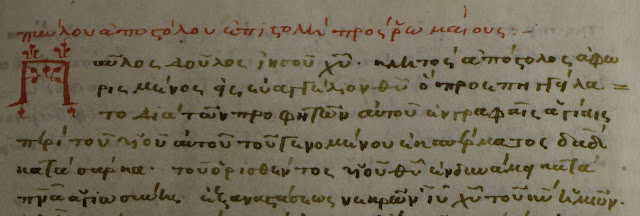 παύλου ἀποστόλου ἐπιστολὴ πρὸς ῥωμαίους·
Παῦλος δοῦλος ἰησοῦ χ̅υ̅· κλητὸς ἀπόστολος ἀφω
ρισμένος εἰς εὐαγγέλιον θ̅υ̅ ὃ προεπηγγείλα
το διὰ τῶν προφητῶν αὐτοῦ ἐν γραφαῖς ἁγίαις
περὶ τοῦ υἱοῦ αὐτοῦ τοῦ γενομένου ἐκ σπέρματος δ̅α̅δ̅
κατὰ σάρκα· τοῦ ὁρισθέντος υἱοῦ θ̅υ̅ ἐν δυνάμει κατὰ
π̅ν̅α̅ ἁγιωσύνης ἐξ ἀναστάσεως νεκρῶν ι̅υ̅ χ̅υ̅ τοῦ κ̅υ̅ ἡμῶν.